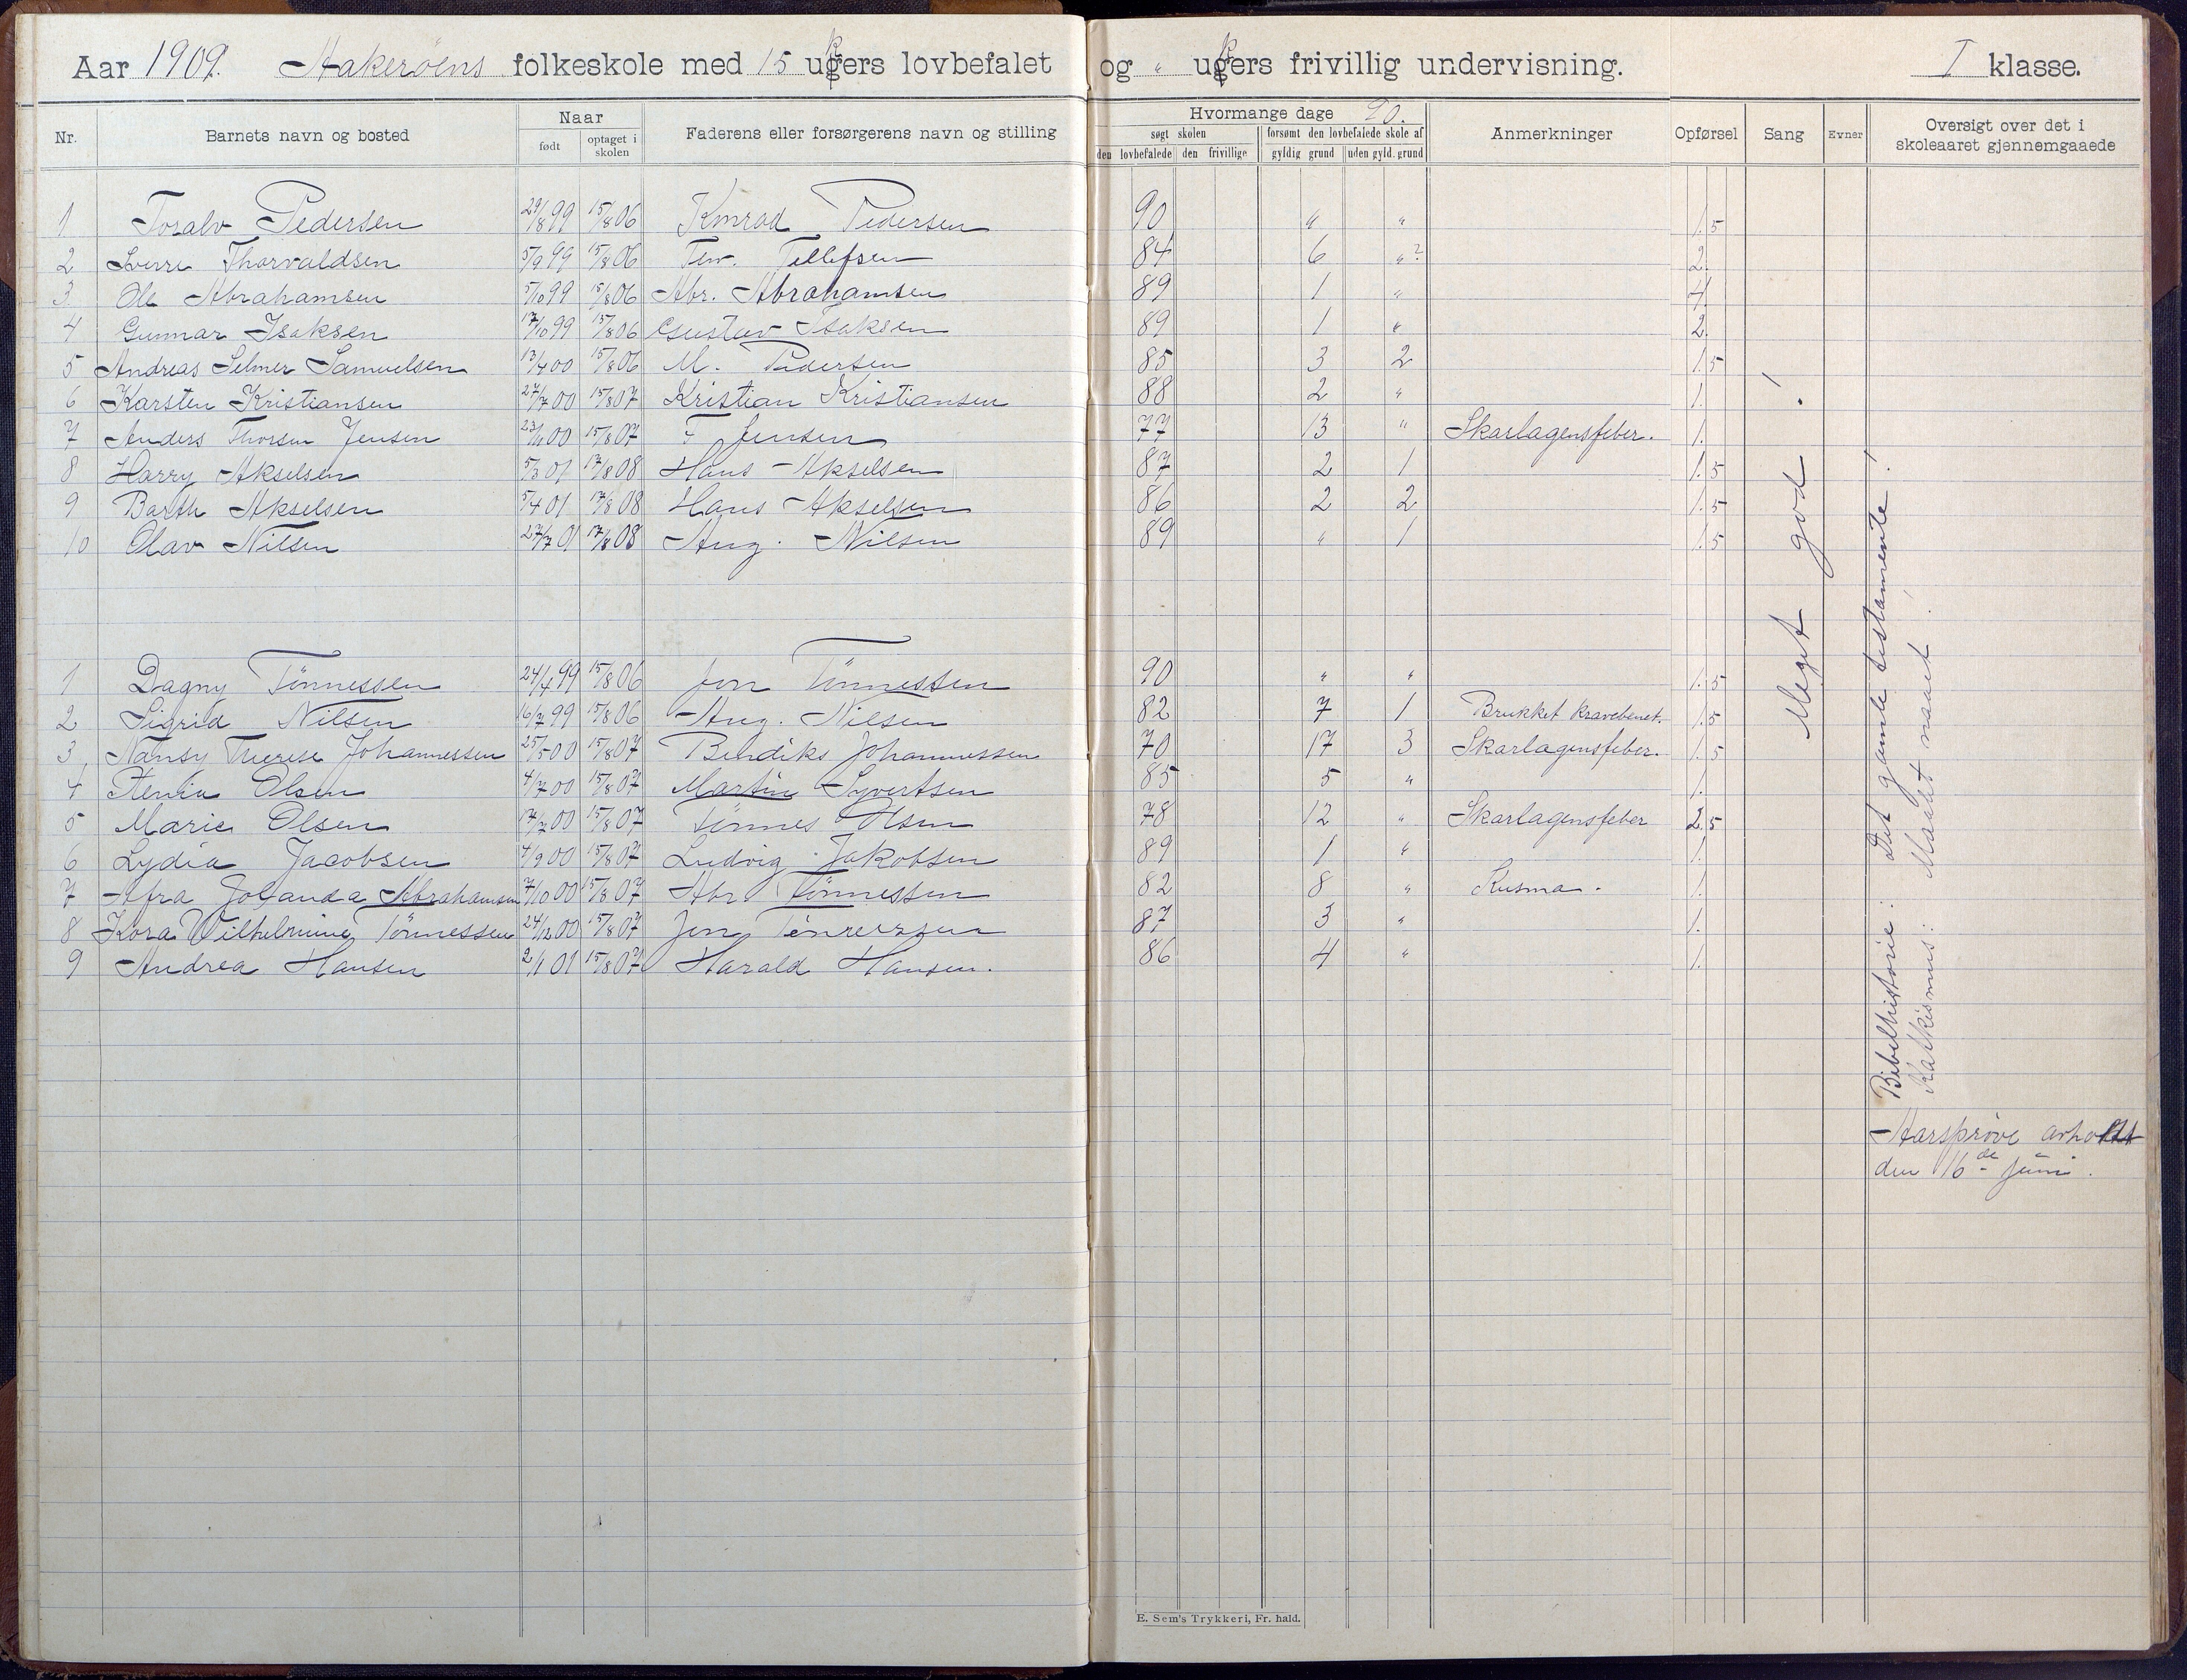 Aar 1909. Aakerøens folkeskole med 15 ukers lovbefalet og " ukers frivillig undervisning. I klasse.
Nr. Barnets navn og bosted Naar født optaget i skolen Faderens eller forsørgerens navn og stilling Hvormange dage 90. søgt skolen den lovbefalede den frivillige forsømt den lovbefalede skole af gyldig grund uden gyld. grund Anmerkninger Opførsel Sang Evner Oversigt over det i skoleaaret gjennemgaaede
1 Toralv Pedersen 29/8 99 15/8 06 Konrad Pedersen 90 " " 1.5
2 Sverre Thorvaldsen 5/9 99 15/8 06 Tellefsen 84 6 "? 2.
3 Ole Abrahamsen 5/10 99 15/8 06 Abr. Abrahamsen 89 1 " 4.
4 Gunnar Isaksen 17/10 99 15/8 06 Gustav Isaksen 89 1 " 2.
5 Andreas Selmer Samuelsen 13/4 00 15/8 06 M. Pedersen 85 3 2 1.5
6 Karsten Kristiansen 27/7 00 15/8 07 Kristian Kristiansen 88 2 " 1.
7 Anders Thorsen Jensen 00 15/8 07 T Jensen 77 13 " Skarlagensfeber. 1.
8 Harry Akselsen 5/3 01 17/8 08 Hans Akselsen 87 2 1 1.5
9 Barth Akselsen 5/4 01 17/8 08 Hans Akselsen 86 2 2 1.5
10 Olav Nilsen 27/7 01 17/8 08 Aug. Nilsen 89 " 1 1.5
1 Dagny Tönnessen 24/4 99 15/8 06 Jon Tönnessen 90 " " 1.5
2 Sigrid Nilsen 16/7 99 15/8 06 Aug. Nilsen 82 7 1 Brukket kravebenet. 1.5
3 Nansy Therese Johannessen 25/5 00 15/8 07 Bendiks Johannessen 70 17 3 Skarlagensfeber. 1.5
4 Stenia Olsen 4/7 00 15/8 07 Martin Syvertsen 85 5 " 1.
5 Marie Olsen 17/7 00 15/8 07 Tönnes Olsen 78 12 " Skarlagensfeber 2.5
6 Lydia Jacobsen 4/9 00 15/8 07 Ludvig Jakobsen 89 1 " 1.
7 Afra Jolanda Abrahamsen 7/10 00 15/8 07 Abr Tönnessen 82 8 " Kusma. 1.
8 Kora Wilhelmine Tönnessen 24/12 00 15/8 07 Jon Tönnessen 87 3 " 1.
9 Andrea Hansen 2/1 01 15/8 07 Harald Hansen. 86 4 " 1.
Meget god!
Bibelhistorie: Det gamle testamente!
Katkismus: Maalet naaet.
Aarsprøve avholdt
den 16de juni.
E. Sem's Trykkeri, Fr. hald.